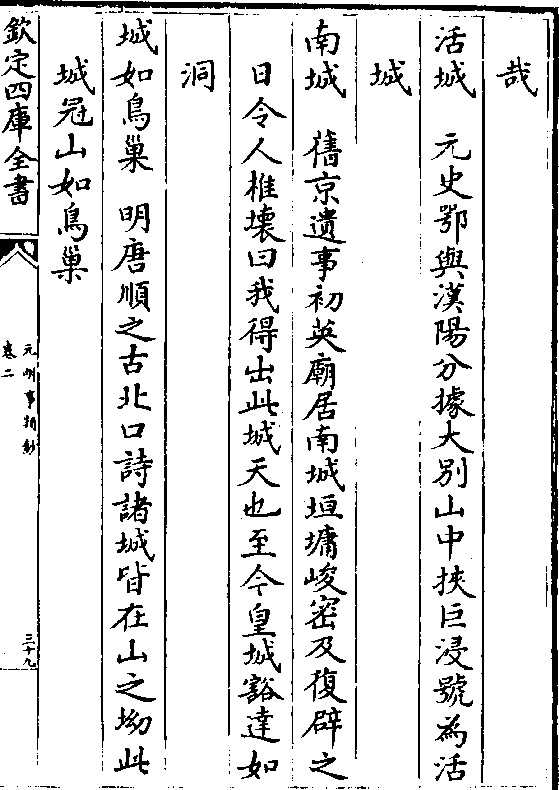 哉
活城　元史鄂與漢陽分據大別山中挾巨浸號為活
城
南城　舊京遺事初英廟居南城垣墉峻密及復辟之
日令人椎壞曰我得出此城天也至今皇城豁達如
洞
城如鳥巢　明唐順之古北口詩諸城皆在山之坳此
城冠山如鳥巢
欽定四庫全書
元明事類鈔
卷二
三十九